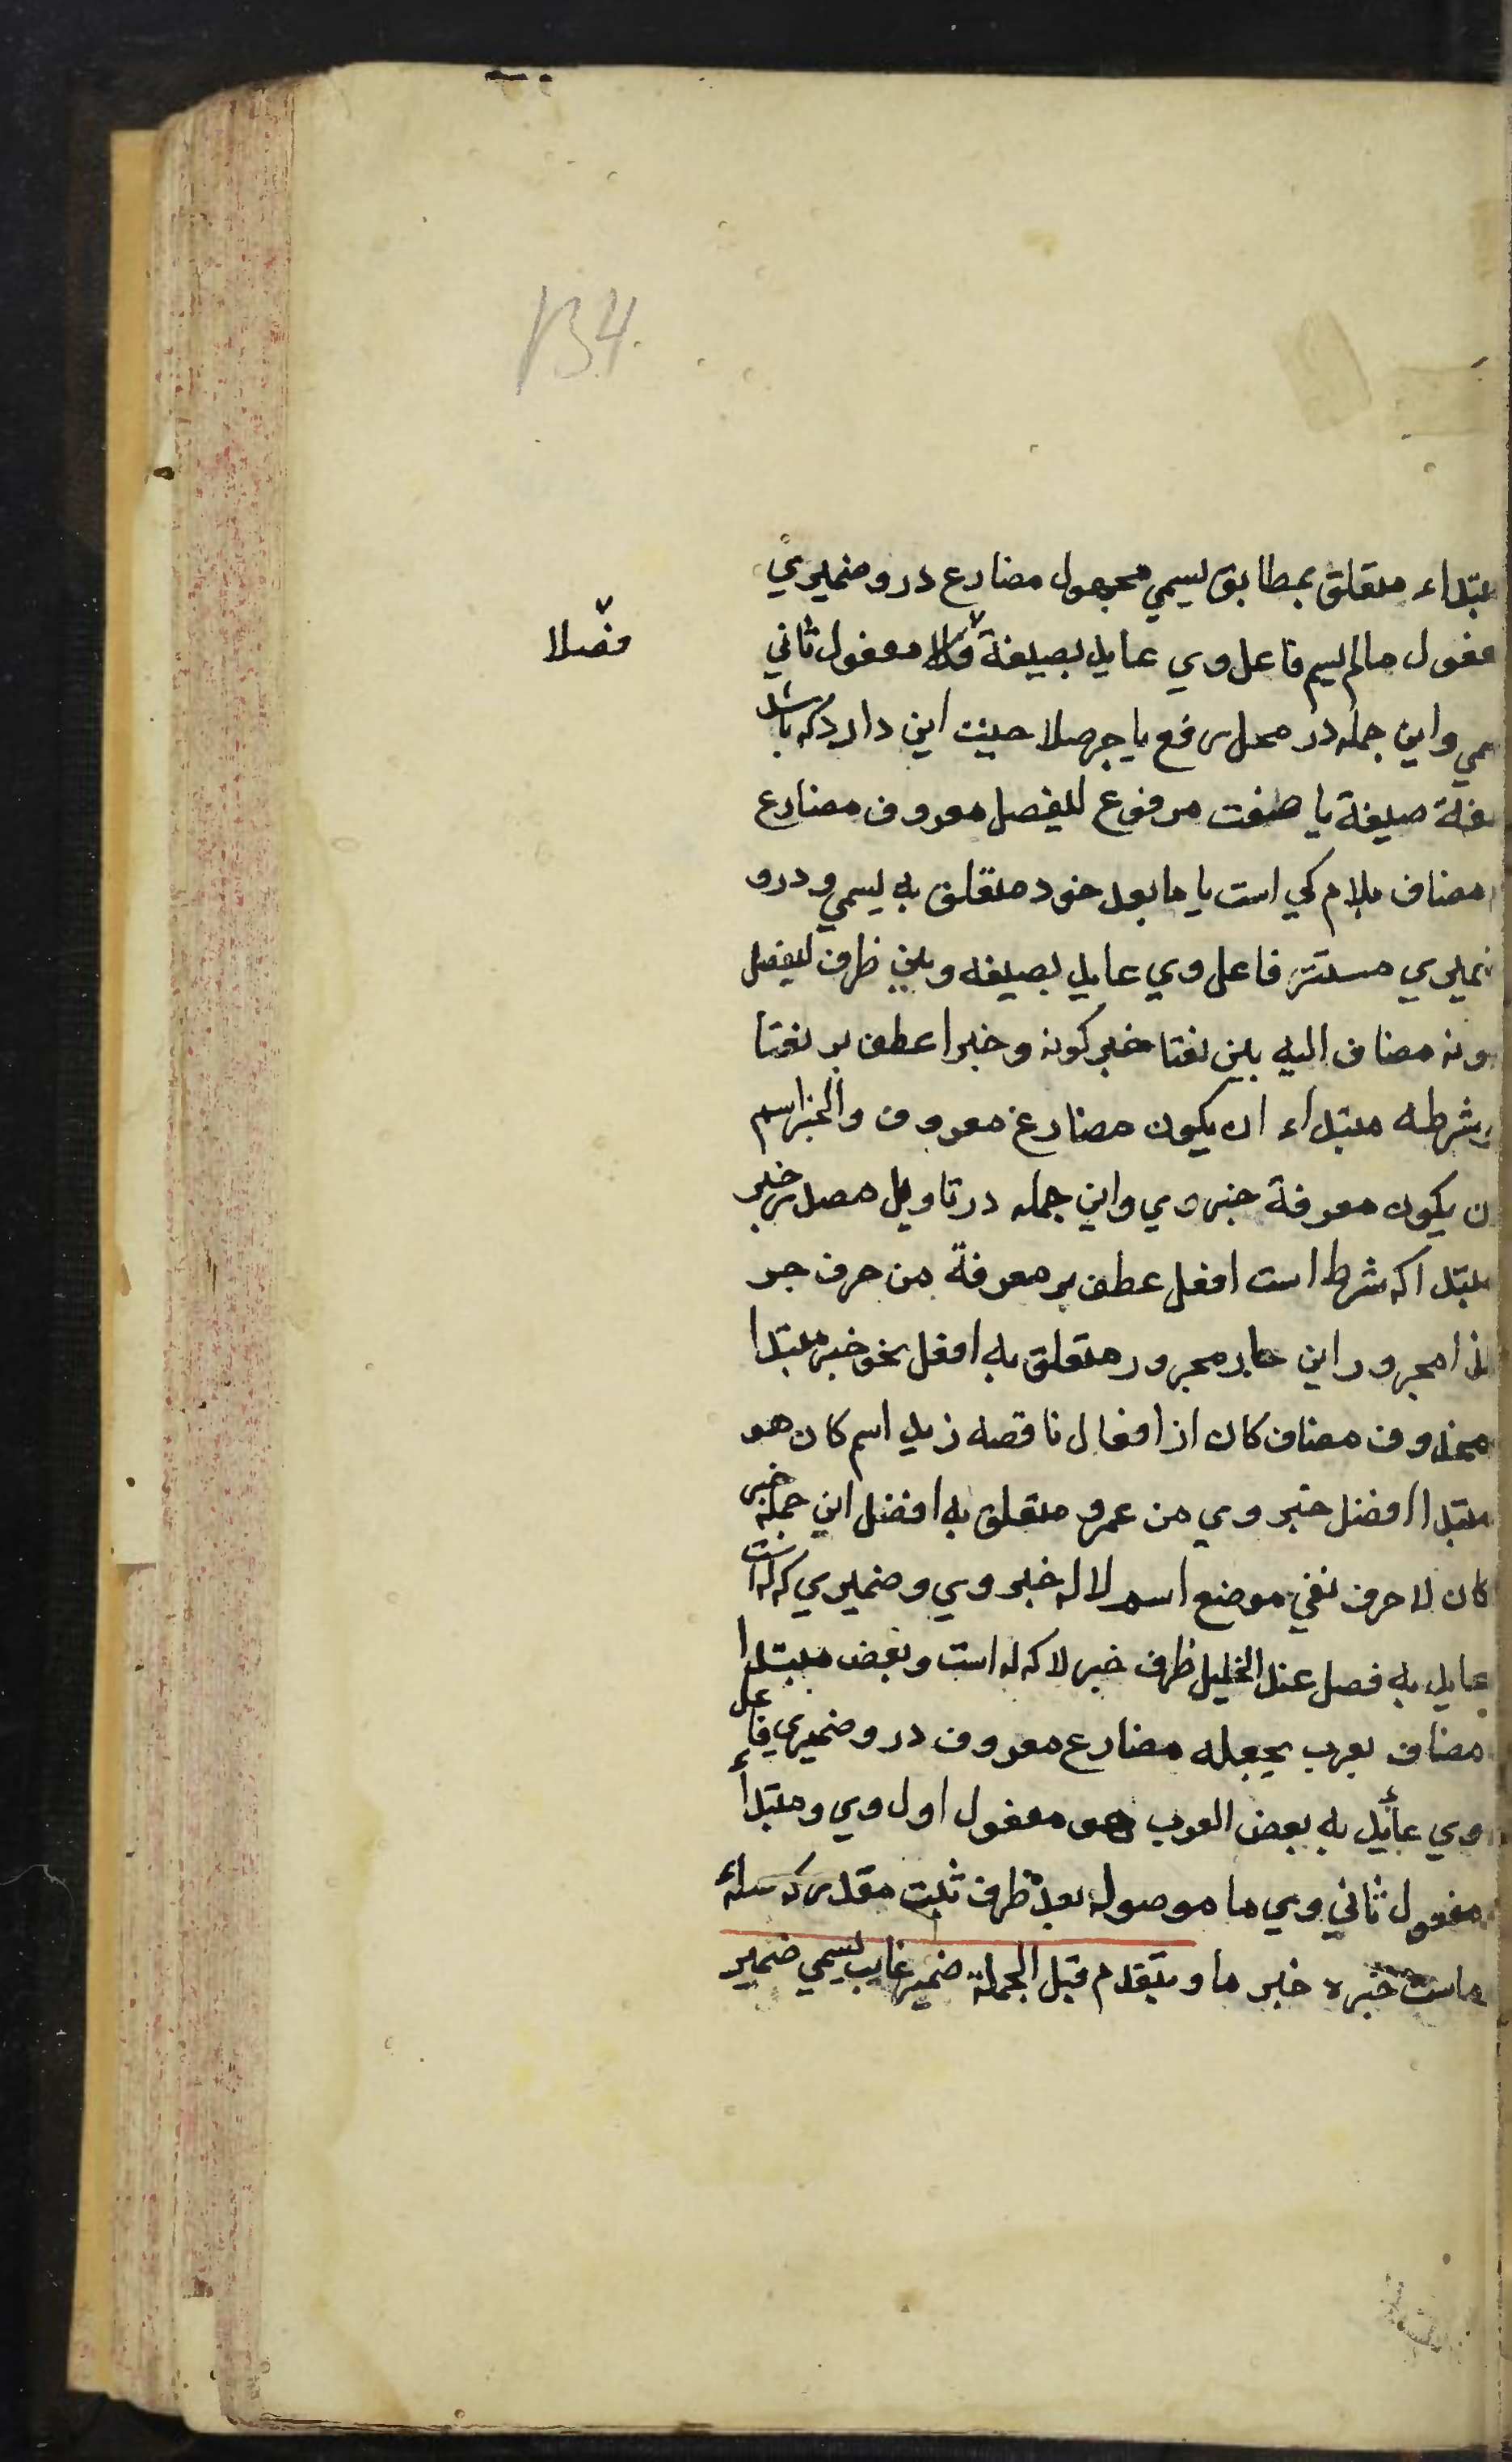 134.
مبتداء متعلق بمطابق یسمي مجهول مضارع درو ضمیري
مفعول مالم یسم فاعل وي عاید بصیغة مفعول ثاني
فصلا
سمي واین جمله در محل رفع یا جر صلاحیت این دارد که باشد
صفة صیغة یا صفت مرفوع لیفصل معروف مضارع
مضاف بلام کي است یا مابعد خود متعلق به یسمي ودرو
ضمیري مستتر فاعل وي عاید بصیغه وبین ظرف لیفصل
کونه مضاف الیه بین نعتا خبر کونه وخبرا عطف بر نعتا
وشرطه مبتداء ان یکون مضارع معروف والخبر اسم
ان یکون معرفة خبر وي واین جمله در تاویل مصدر خبر
مبتدا که شرط است افعل عطف بر معرفة من حرف جر
کذا مجرور این جار مجرور متعلق به افعل نحو خبر مبتدا
محذوف مضاف کان از افعال ناقصه زید اسم کان هو
مبتدا افضل خبر وي من عمرو متعلق به افضل این جمله خبر
کان لا حرف نفي موضع اسم لا له خبر وي وضمیري که له است
عاید به فصل عند الخلیل ظرف خبر لا که له است وبعض مبتدا
مضاف بعرب یجعله مضارع معروف درو ضمیری فاعل
وي عائد به بعض العرب هو مفعول اول وي ومبتدأ
مفعول ثاني وي ما موصوله بعده ظرف ثبت مقدر که صله
ماست خبره خبر ما ویتقدم قبل الجملة ضمیر غایب یسمي ضمیر